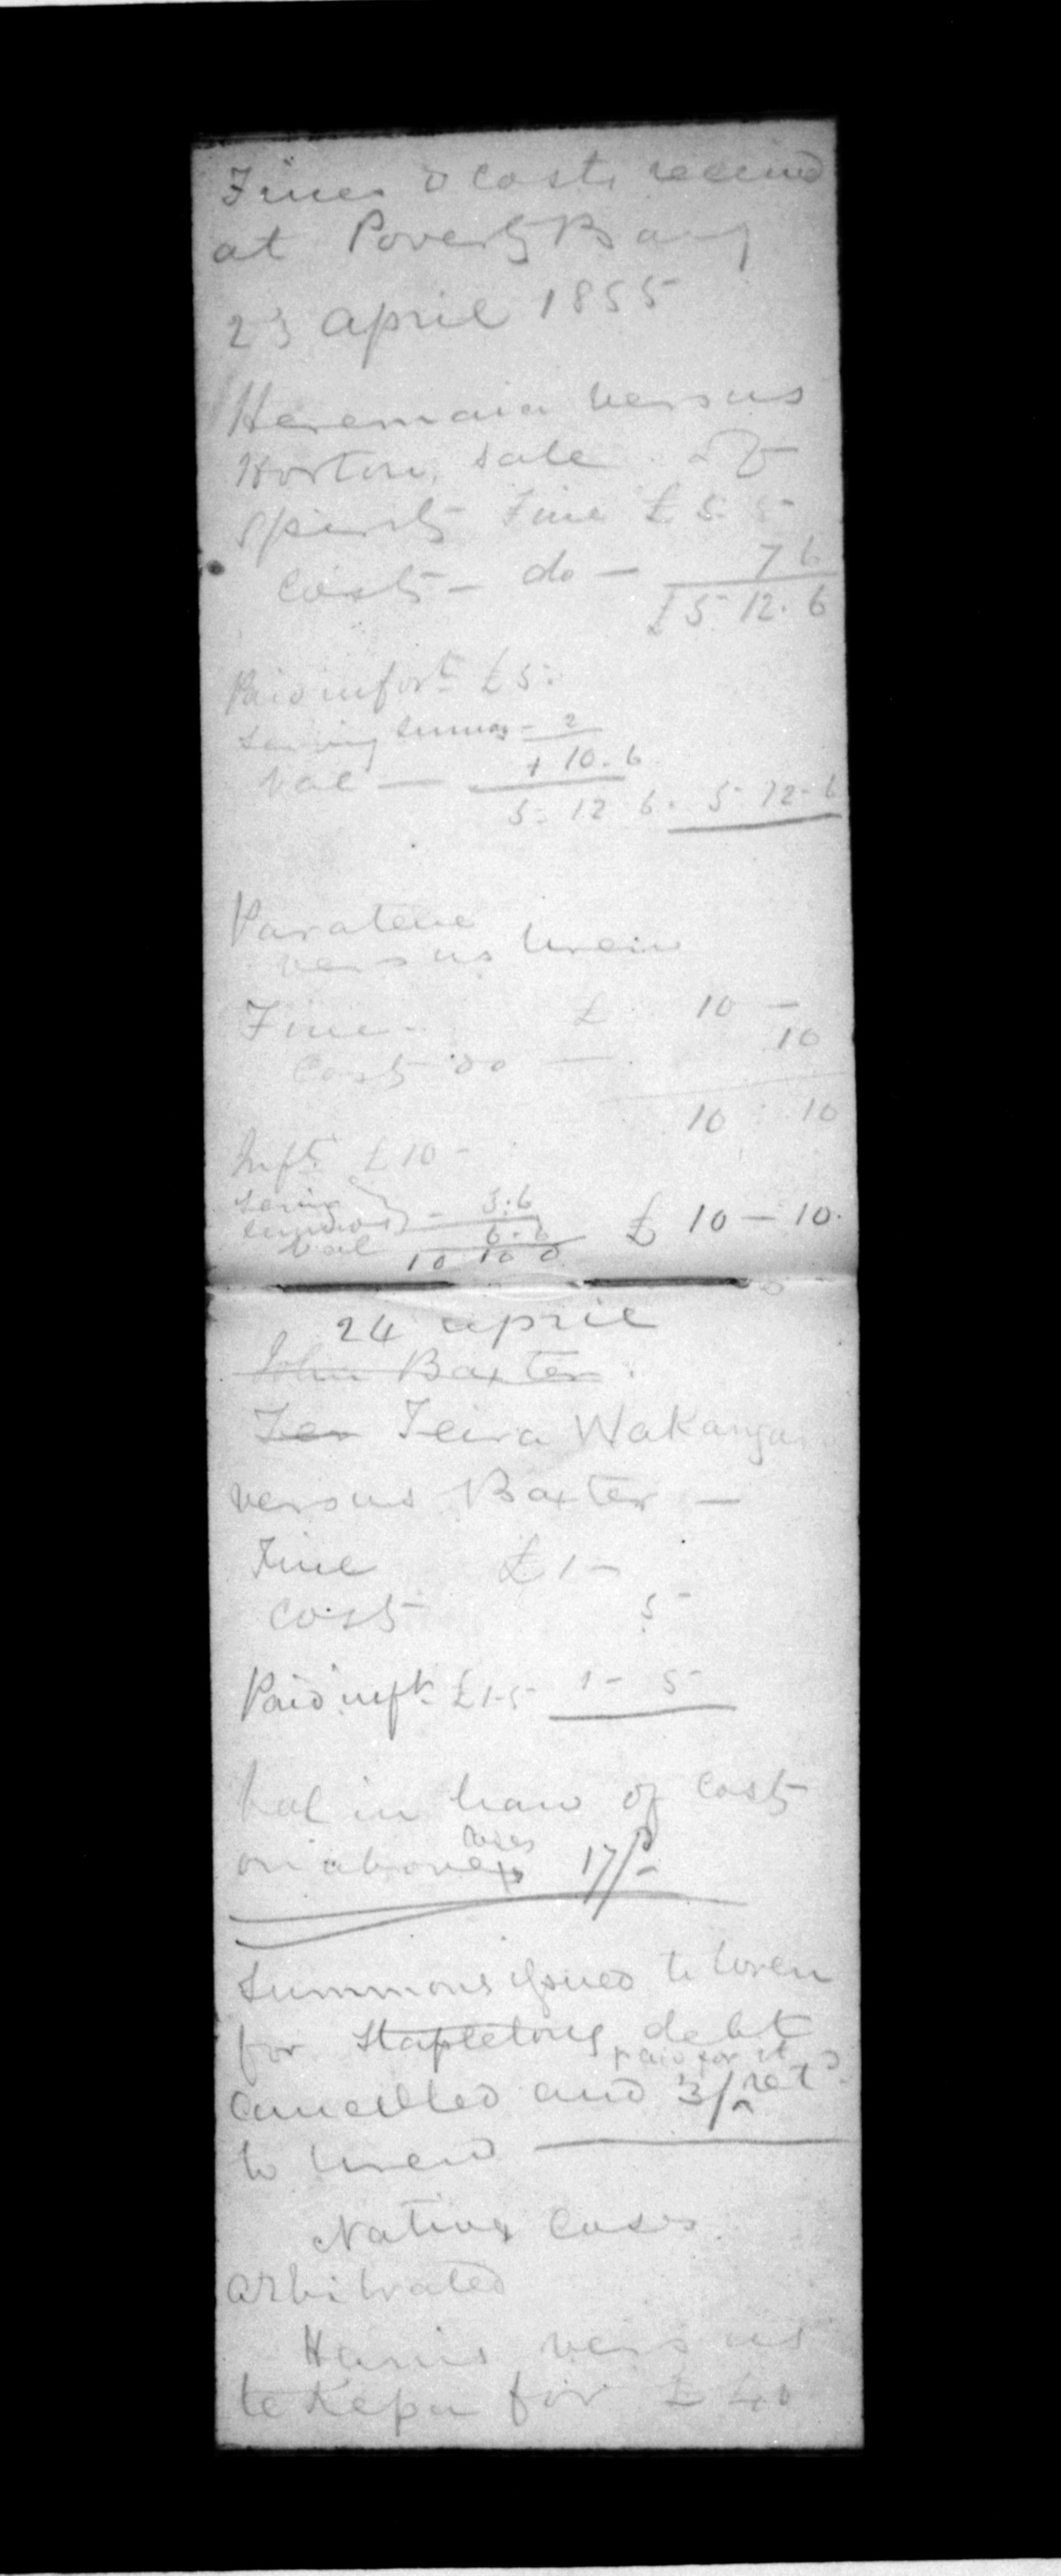 Fines & costs received
at Poverty Bay
23 april 1855
Heremaia versus
Horton, sale of
spirits Fine £ 5. 5 -
Costs - do - 7 6
£ 5 12. 6
Paid infort £ 5.
serving summs - 2
bal - + 10. 6
5. 12 6. 5. 12. 6
Paratene
versus Uren
Fine. £ 10 -
Costs do - 10
10 : 10
Inft. £ 10 -
serving
summons - 3.6
bal 6. 6 £ 10 - 10.
10 10 0
24 april
John Baxter.
Ter Teira Wakanga
versus Baxter -
Fine £ 1 -
costs 5 -
Paid inft. £ 1-5- 1 - 5 -
bal in han of costs
on above cases 17/-
Summons issued to Uren
for Stapletons debt
paid for it
cancelled and 3/ retd.
to Uren
Native Cases
arbitrated
Harris versus
te Kepa for £ 40